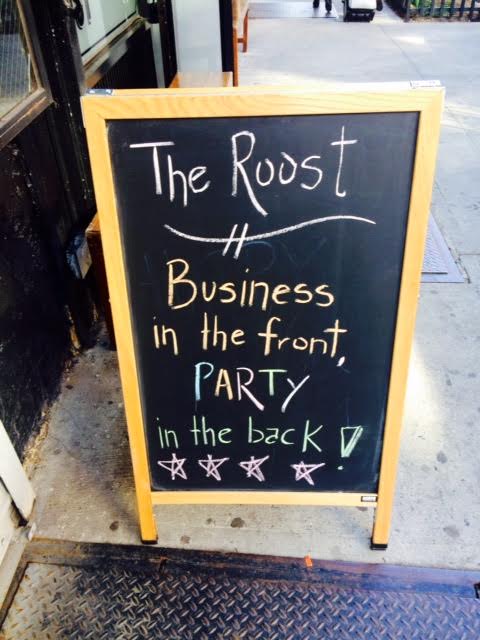 The Roost
Business
in the front,
PARTY
in the back!